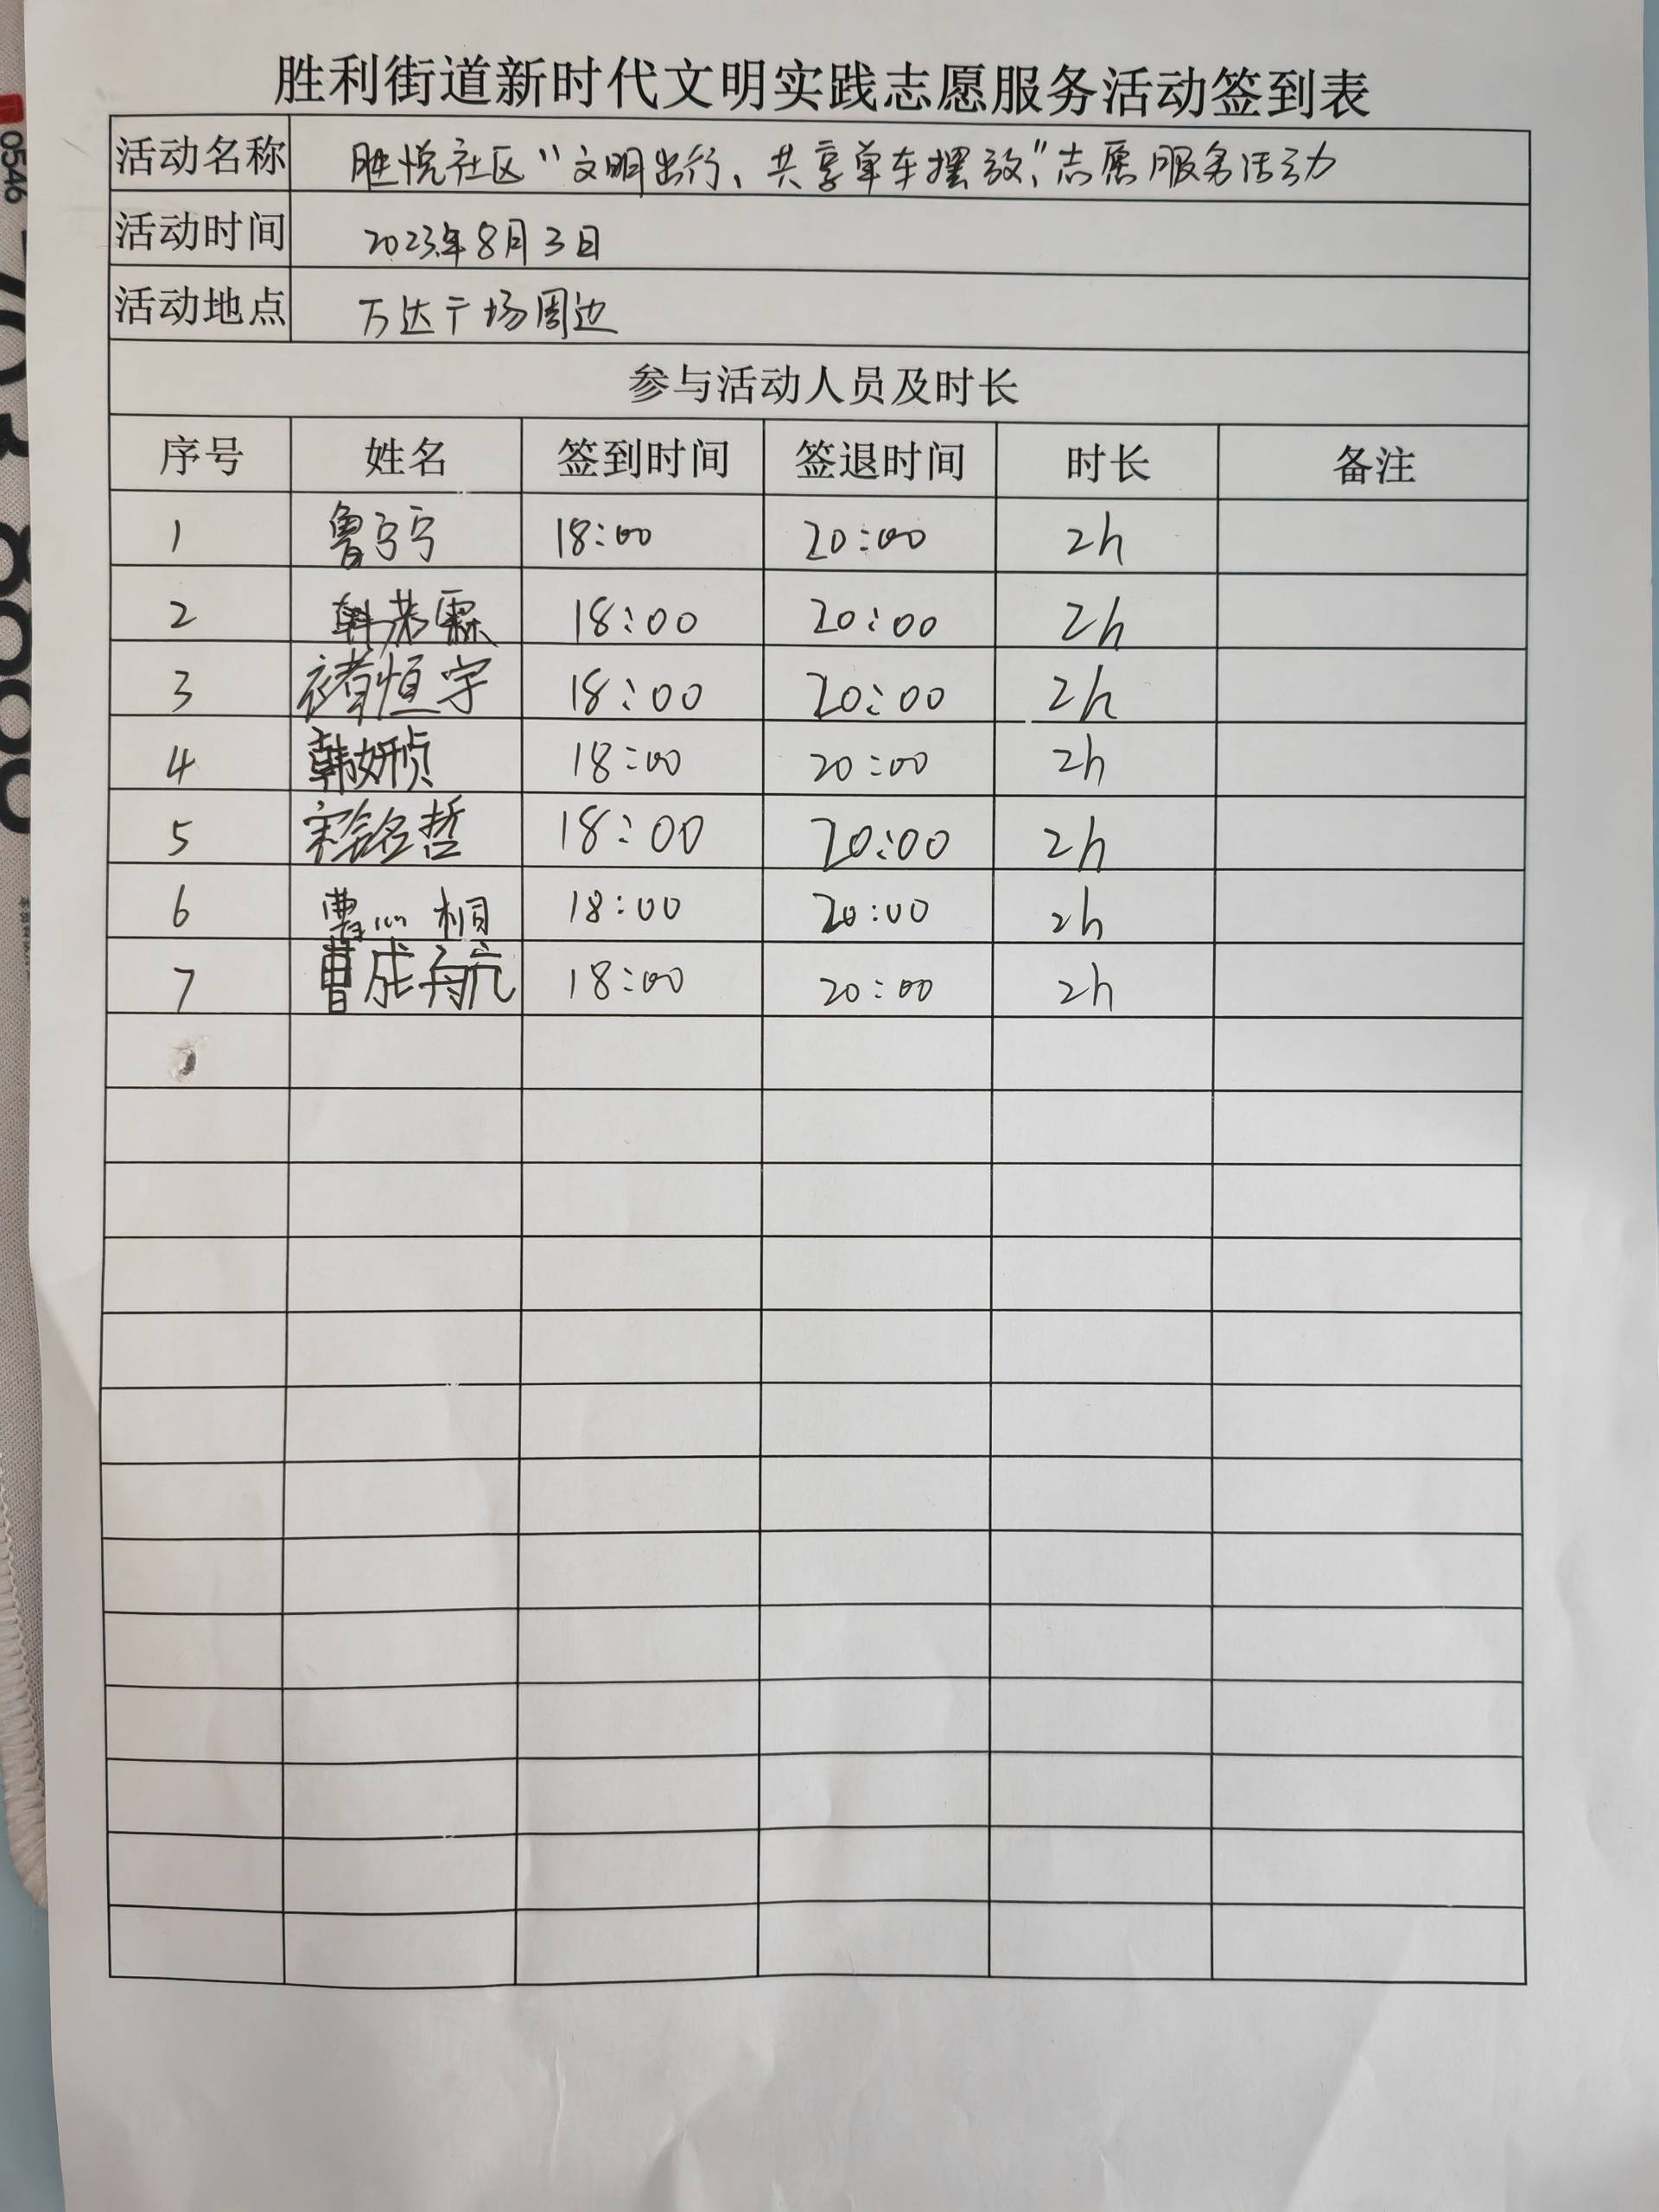 胜利街道新时代文明实践志愿服务活动签到表
活动名称 胜悦社区“文明出行、共享单车摆放”志愿服务活动
活动时间 2023年8月3日
活动地点 万达广场周边
参与活动人员及时长
序号 姓名 签到时间 签退时间 时长 备注
1 鲁宁宁 18:00 20:00 2h
2 韩 霖 18:00 20:00 2h
3 褚恒宇 18:00 20:00 2h
4 韩妍桢 18:00 20:00 2h
5 宋铭哲 18:00 20:00 2h
6 曹心桐 18:00 20:00 2h
7 曹成航 18:00 20:00 2h
0546